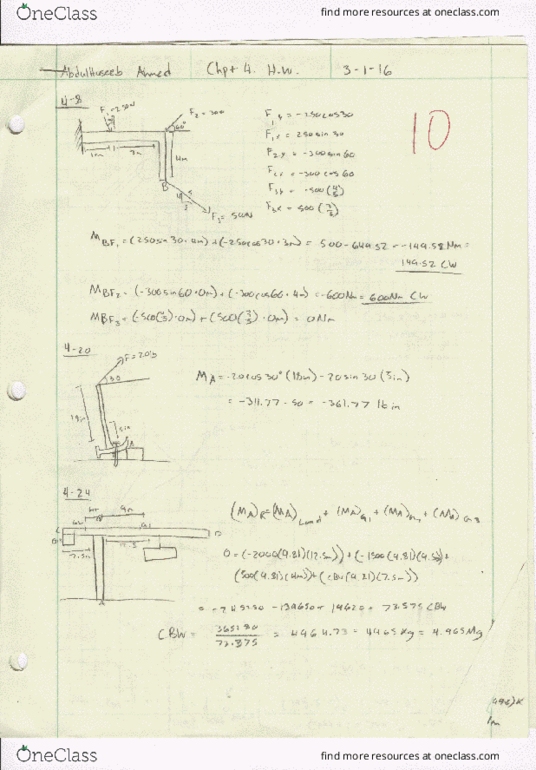 OneClass find more resources at oneclass.com
AbdulHuseeb Ahmed Chpt 4. H.W. 3-1-16
4-8
10
F₁=250N
F₂=300
60°
1m
4m
B
F₃=500N
F₁y = -250cos30
F₁x = 250sin30
F₂y = -300sin60
F₂x = -300cos60
F₃y = -500(4/5)
F₃x = 500(3/5)
M_BF₁ = (250sin30·4m)+(-250cos30·3m) = 500-649.52 = -149.52Nm =
149.52 CW
M_BF₂ = (-300sin60·0m)+(-300cos60·4m) = -600Nm = 600Nm CW
M_BF₃ = (-500(4/5)·0m)+(500(3/5)·0m) = 0Nm
4-20
F=20lb
30
M_A = -20cos30°(18in)-20sin30(5in)
= -311.77-50 = -361.77 lb in
4-24
(M_A)_R = (M_A)_Load + (M_A)_G1 + (M_A)_G2 + (M_A)_G3
0 = (-2000(9.81)(12.5m))+(-1500(9.81)(9.5))+
(500(9.81)(4m))+(CBW(9.81)(7.5m))
7.5m
9m
CBW = = 4964.73 = 4965kg = 4.965Mg
1m
OneClass find more resources at oneclass.com